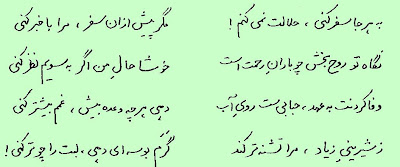 به هر جا سفر کنی ، حلالت نمی کنم !
مگر پیش ازان سفر ، مرا با خبر کنی
نگاه تو روح بخش چو باران رحمت است
خوشا حال من اگر به سویم نظر کنی
وفا کردنت به عهد ، حبابی ست روی آب
دهی هر چه وعده بیش ، غم بیشتر کنی
ز شیرینی زیاد ، مرا تشنه تر کند
گرم بوسه ای دهی ، لبت را چو تر کنی !